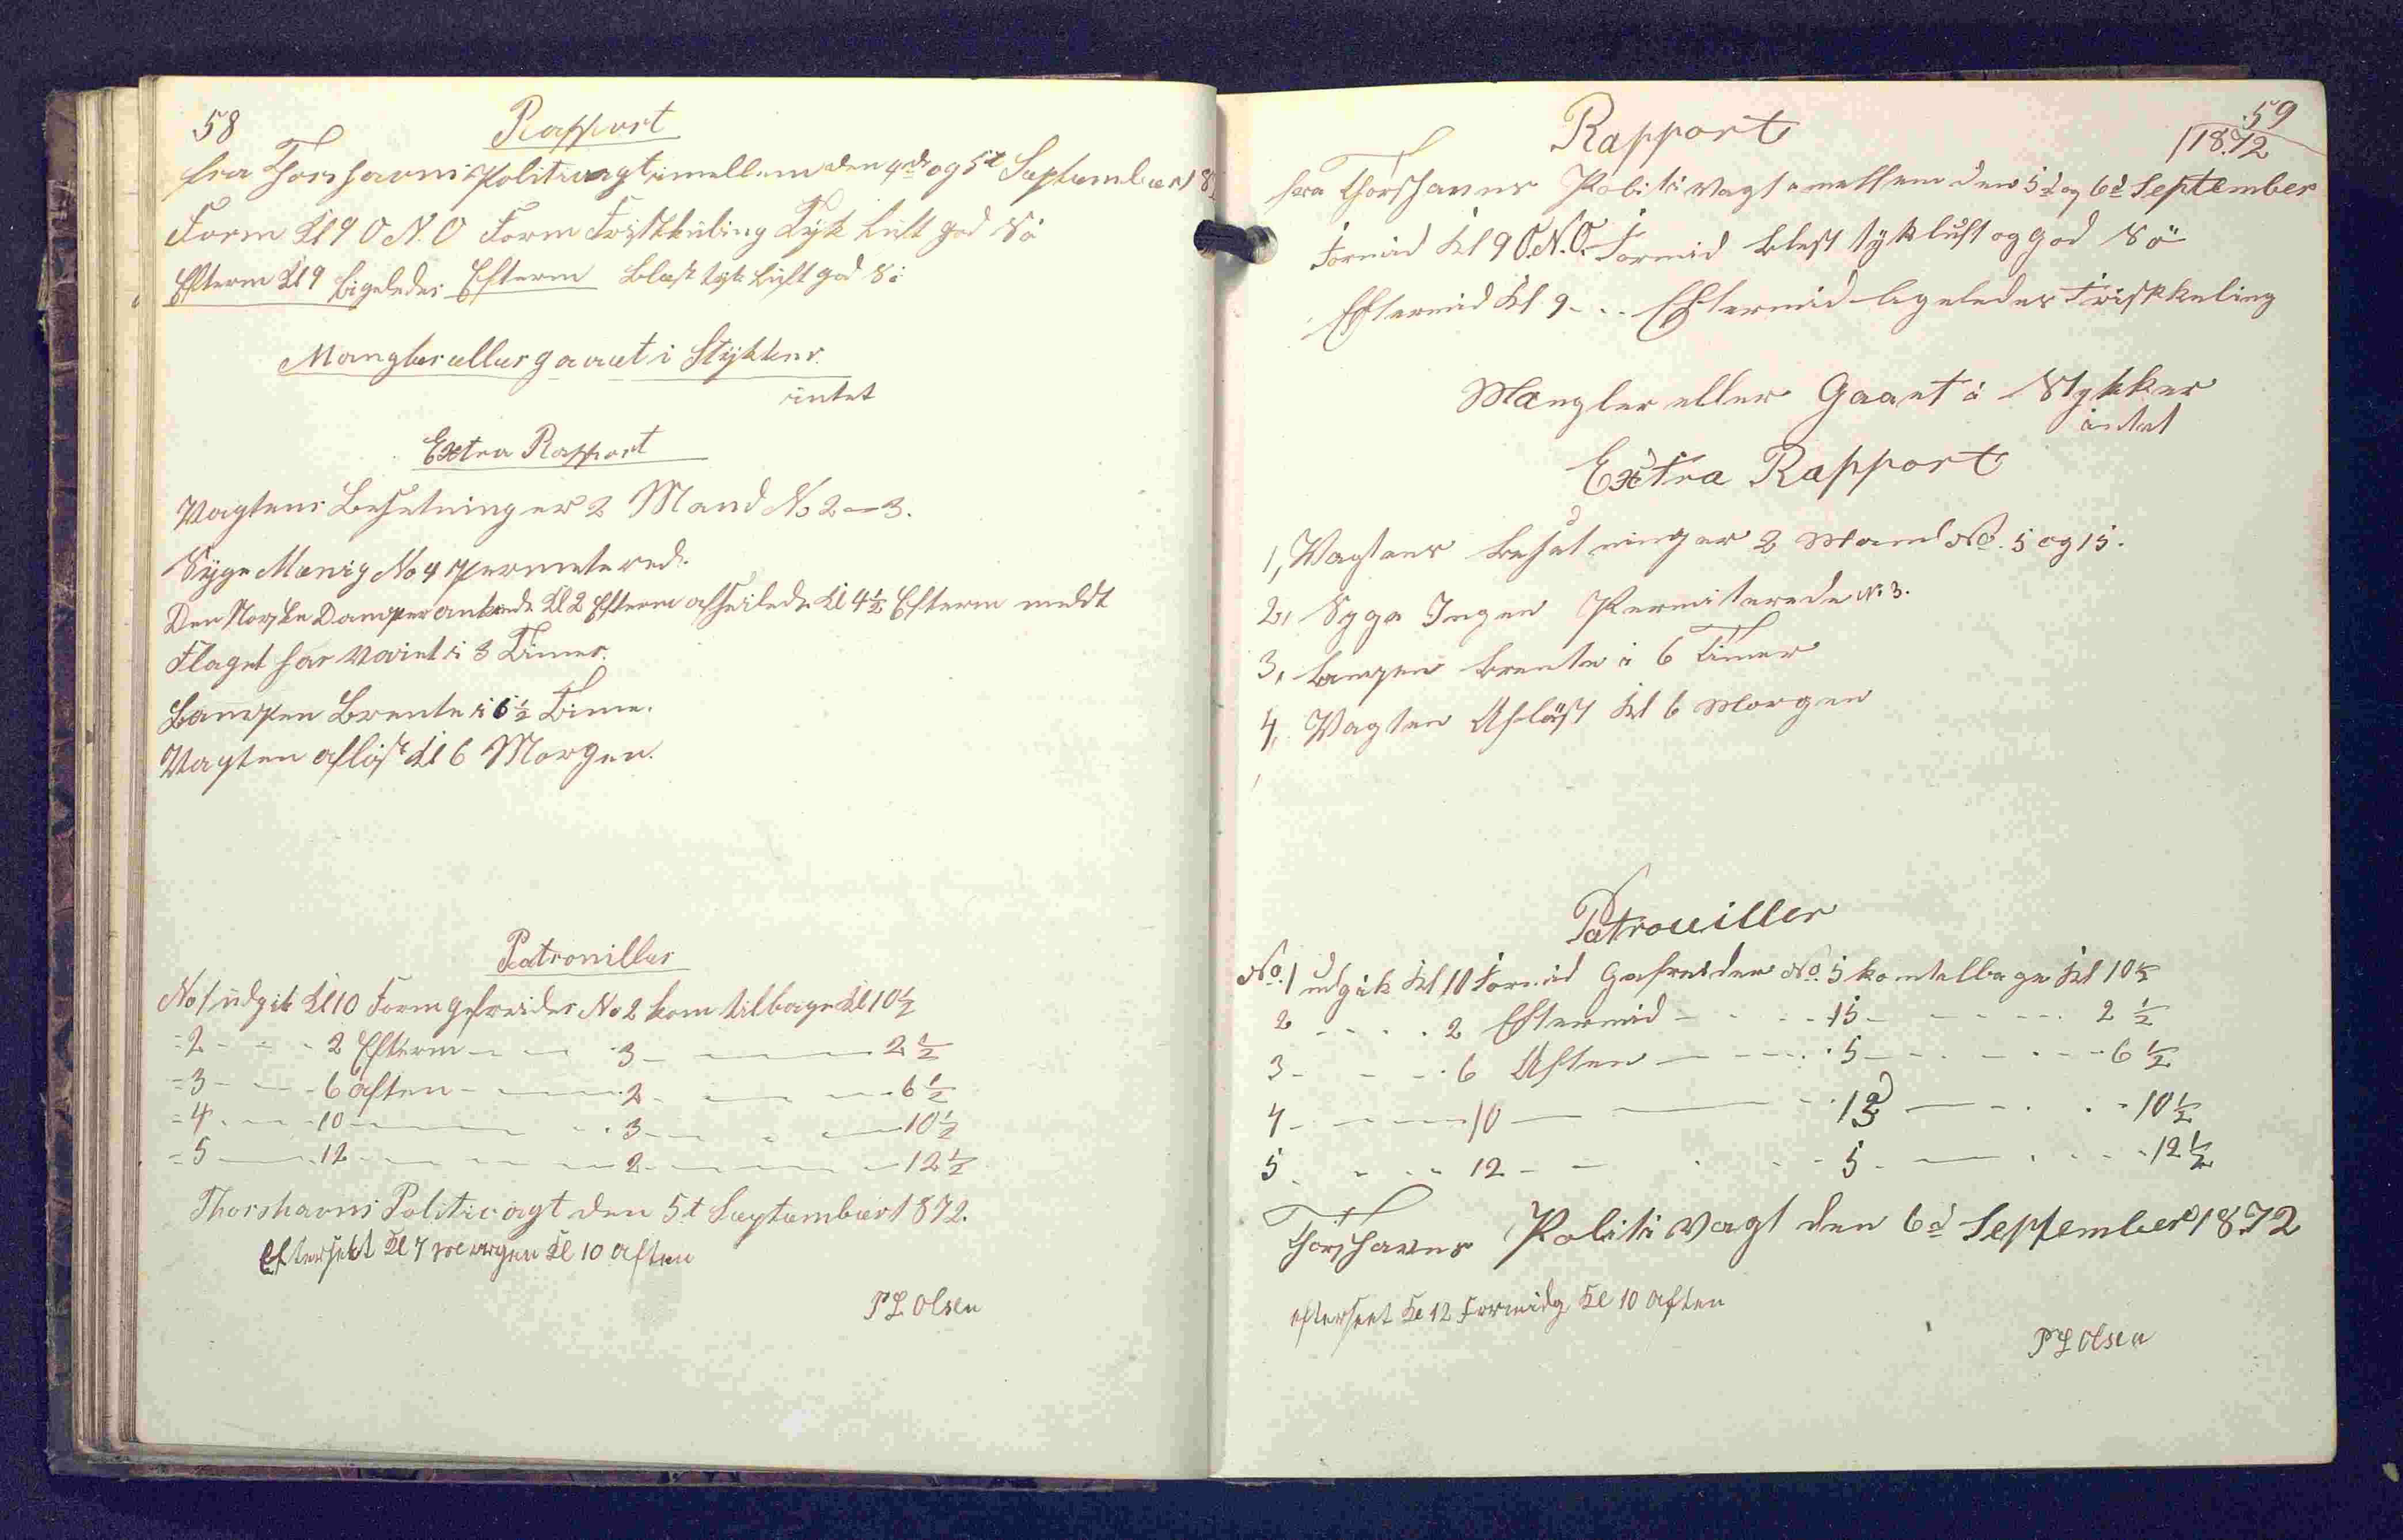 58
Rapport
fra Thorshavns Politivagt imellem den 4de og 5t September 18
Form Kl 9 O.N.O Form Friskkuling Tyk Luft god Sö
Efterm Kl 9 ligeledes Efterm blæst tyk Luft god Sö
Mangler eller gaaet i Stykker
intet
Extra Rapport
Vagtens Besetning er 2 Mand No 2 - 3.
Syge Menig No 4 permetered.
Den Norske Damper ankede Kl 2 Efterm afseilede Kl 4½ Efterm meldt
Flaget har vaiet i 3 Timer.
Lampen Brente i 6½ Time.
Vagten aflöst Kl 6 Morgen.
Patrouiller
No 1 udgik Kl 10 Form gefreider No 2 kom tilbage Kl 10½
=2 - - - 2 Efterm - - - 3 - - - 2½
=3 - - - 6 aften - - - 2 - - - 6½
=4 - - - 10 - - - 3 - - - 10½
=5 - - - 12 - - - 2 - - - 12½
Thorshavns Politivagt den 5t September 1872.
Efterseet Kl 7 morgen Kl 10 aften
P L Olsen
59
1872
Rapport
fra Thorshavns Politi Vagt emellem den 5d og 6d September
Formid Kl 9 O.N.O. Formid blest tyk luft og god Sö
Eftermid Kl 9 - .. Eftermid ligeledes Friskkuling
Mangler eller Gaaet i Stykker
intet
Extra Rapport
1, Vagtens besetning er 2 Mand No. 5 og 15.
2, Syge Ingen Permiterede N: 3.
3, Lampen brente i 6 Timer
4, Vagten Aflöst Kl 6 Morgen
Patrouiller
No. 1 udgik Kl 10 Formid Gefreider No. 5 kom telbage Kl 10½
2 - - - 2 Eftermid - - - 15 - - - 2½
3 - - - 6 Aften - - - 5 - - - 6½
4 - - - 10 - - - 15 - - - 10½
5 - - - 12 - - - 5 - - - 12½
Thorshavns Politi Vagt den 6d September 1872
efterseet Kl 12 Formidg Kl 10 aften
P L Olsen